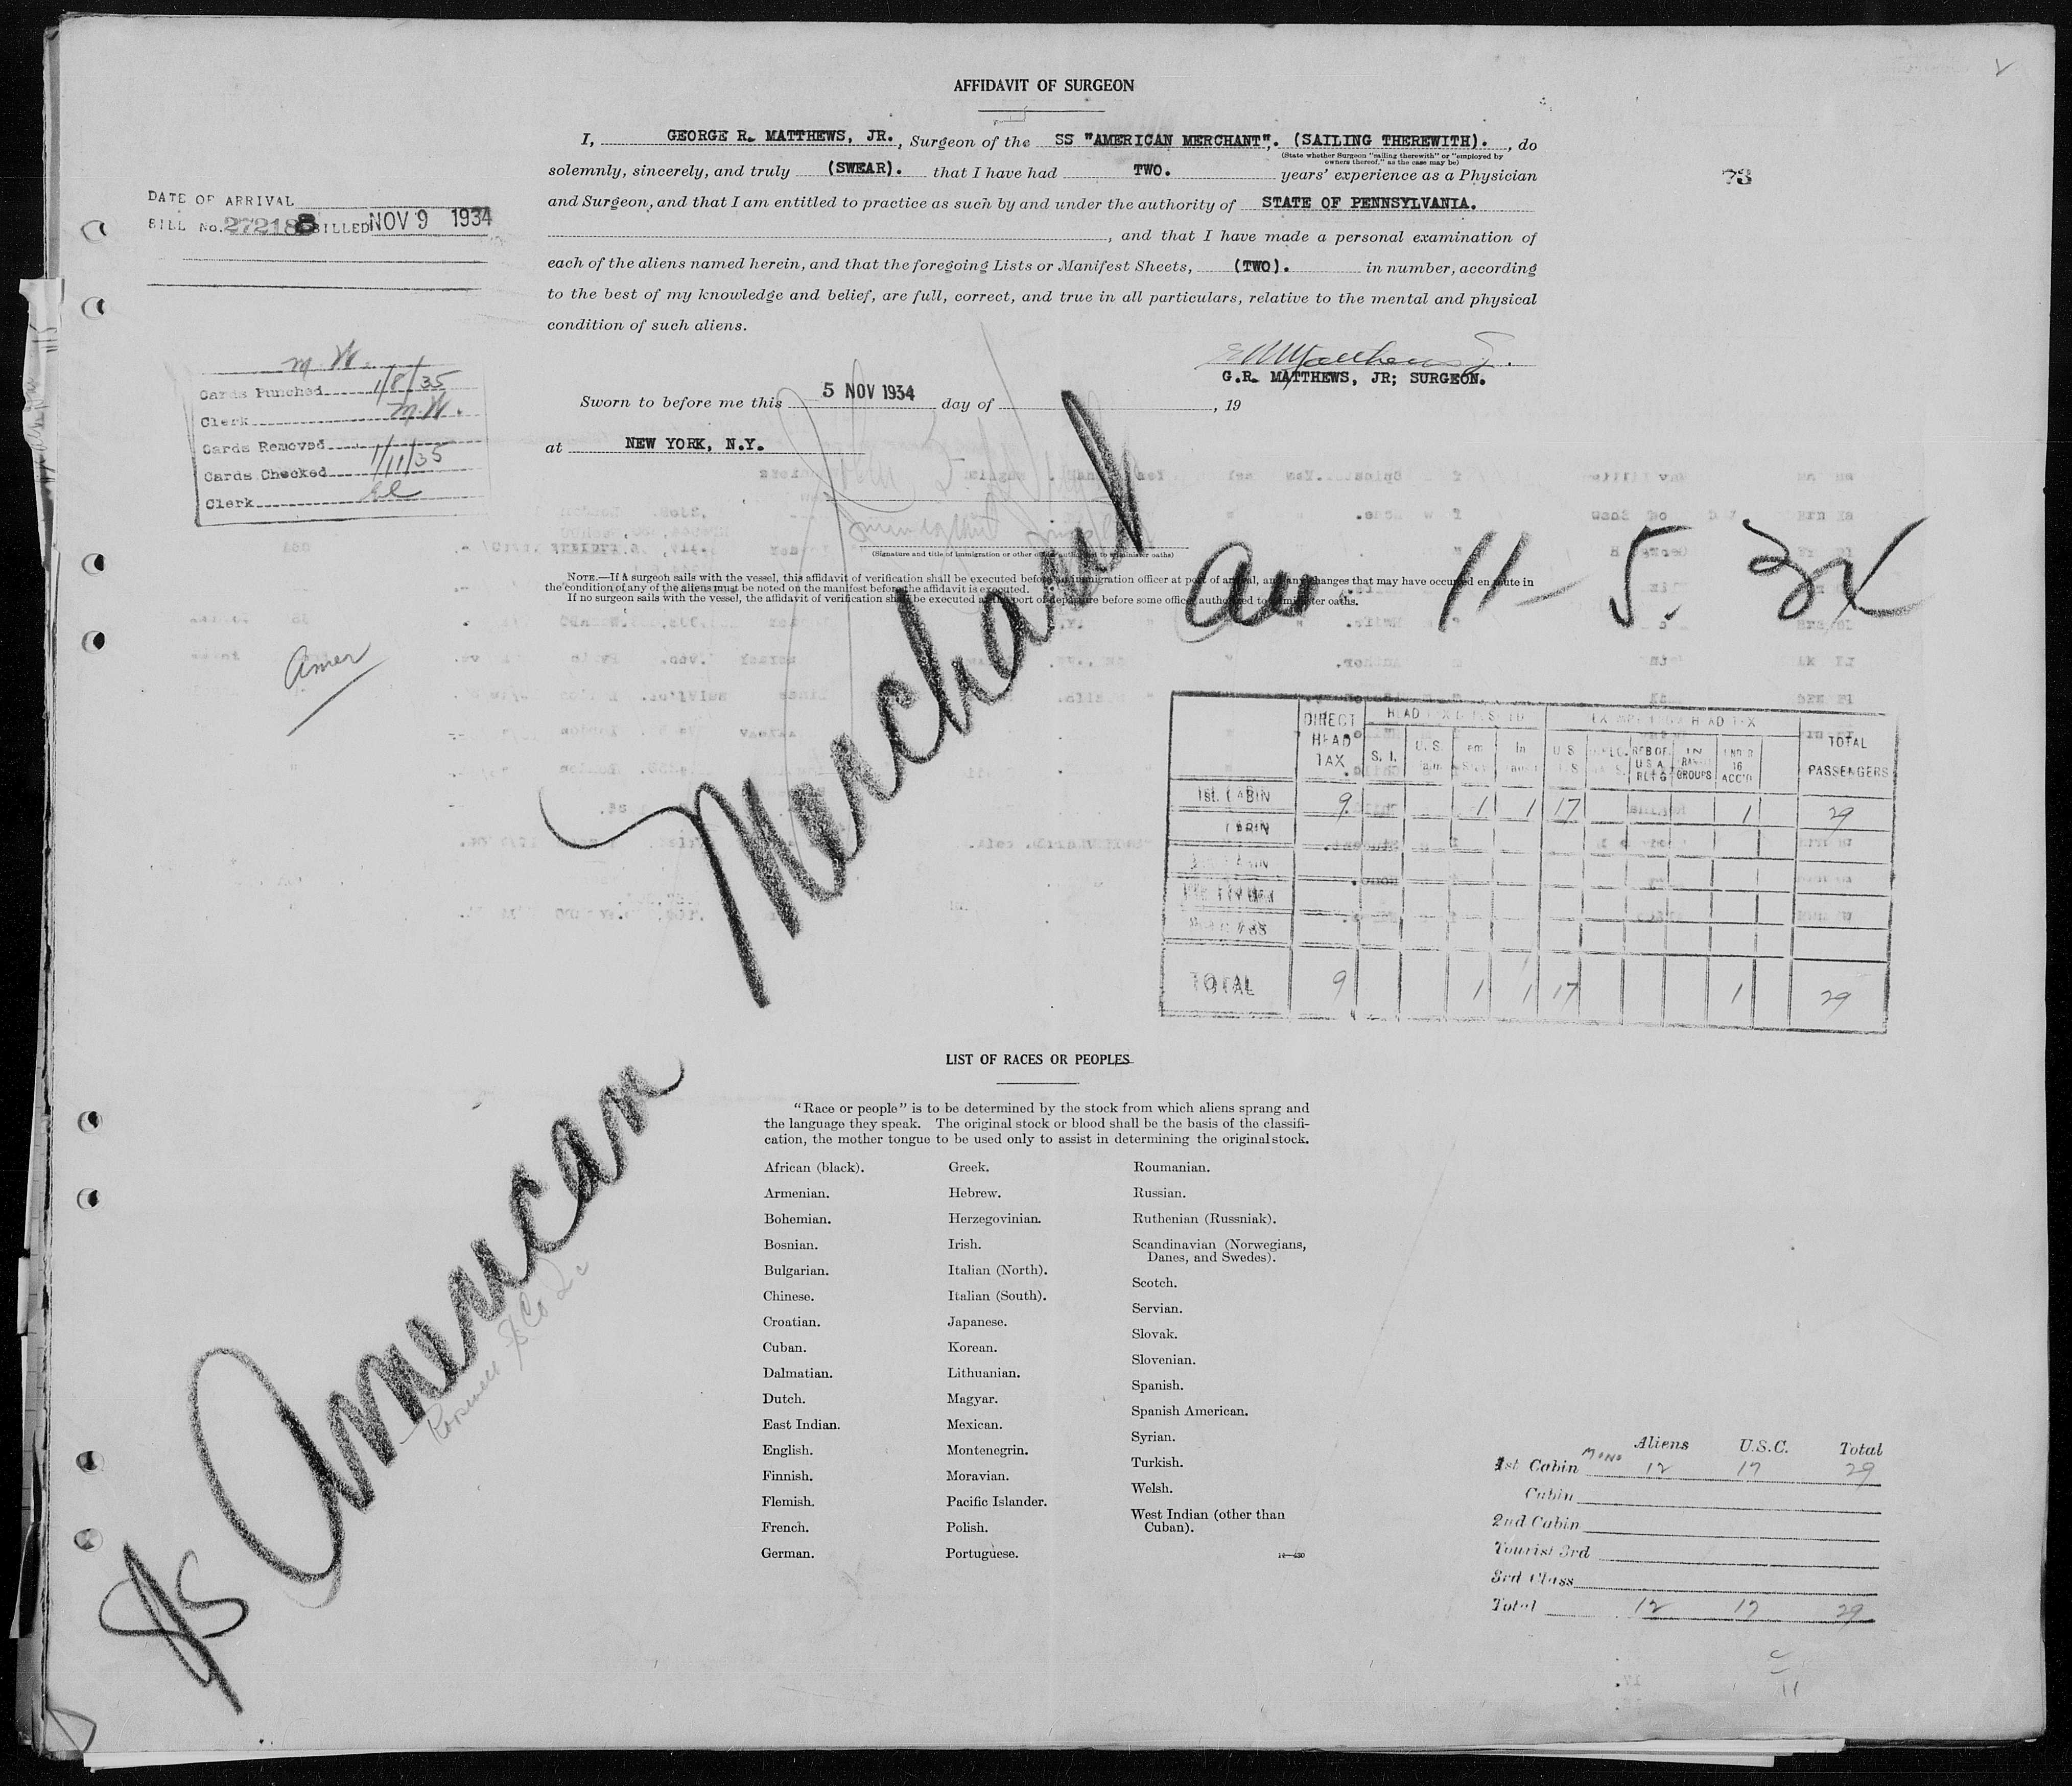 AFFIDAVIT OF SURGEON
I, GEORGE R. MATTHEWS, JR., Surgeon of the SS "AMERICAN MERCHANT". (SAILING THEREWITH). , do
(State whether Surgeon "sailing therewith" or "employed by
owners thereof," as the case may be)
solemnly, sincerely, and truly (SWEAR). that I have had TWO. years' experience as a Physician
73
and Surgeon, and that I am entitled to practice as such by and under the authority of STATE OF PENNSYLVANIA.
, and that I have made a personal examination of
each of the aliens named herein, and that the foregoing Lists or Manifest Sheets, (TWO). in number, according
to the best of my knowledge and belief, are full, correct, and true in all particulars, relative to the mental and physical
condition of such aliens.
DATE OF ARRIVAL
BILL No. 272188 BILLED NOV 9 1934
M. W.
Cards Punched 1/8/35
Clerk M.W.
Cards Removed
Cards Checked 1/11/35
Clerk El
G.R. MATTHEWS, JR; SURGEON.
Sworn to before me this 5 NOV 1934 day of , 19
at NEW YORK, N.Y.
(Signature and title of immigration or other officer authorized to administer oaths)
NOTE.—If a surgeon sails with the vessel, this affidavit of verification shall be executed before an immigration officer at port of arrival, and any changes that may have occurred en route in
the condition of any of the aliens must be noted on the manifest before the affidavit is executed.
If no surgeon sails with the vessel, the affidavit of verification shall be executed at the port of departure before some officer authorized to administer oaths.
Amer
S/S American Merchant
arr 11-5.34
DIRECT HEAD TAX
S. I.
U. S.
TOTAL PASSENGERS
1st. CABIN 9 1 1 17 1 29
CABIN
TOTAL 9 1 1 17 1 29
LIST OF RACES OR PEOPLES
"Race or people" is to be determined by the stock from which aliens sprang and
the language they speak. The original stock or blood shall be the basis of the classifi-
cation, the mother tongue to be used only to assist in determining the original stock.
African (black).
Armenian.
Bohemian.
Bosnian.
Bulgarian.
Chinese.
Croatian.
Cuban.
Dalmatian.
Dutch.
East Indian.
English.
Finnish.
Flemish.
French.
German.
Greek.
Hebrew.
Herzegovinian.
Irish.
Italian (North).
Italian (South).
Japanese.
Korean.
Lithuanian.
Magyar.
Mexican.
Montenegrin.
Moravian.
Pacific Islander.
Polish.
Portuguese.
Roumanian.
Russian.
Ruthenian (Russniak).
Scandinavian (Norwegians,
Danes, and Swedes).
Scotch.
Servian.
Slovak.
Slovenian.
Spanish.
Spanish American.
Syrian.
Turkish.
Welsh.
West Indian (other than
Cuban).
Aliens U.S.C. Total
1st Cabin 12 17 29
Cabin
2nd Cabin
Tourist 3rd
3rd Class
Total 12 17 29